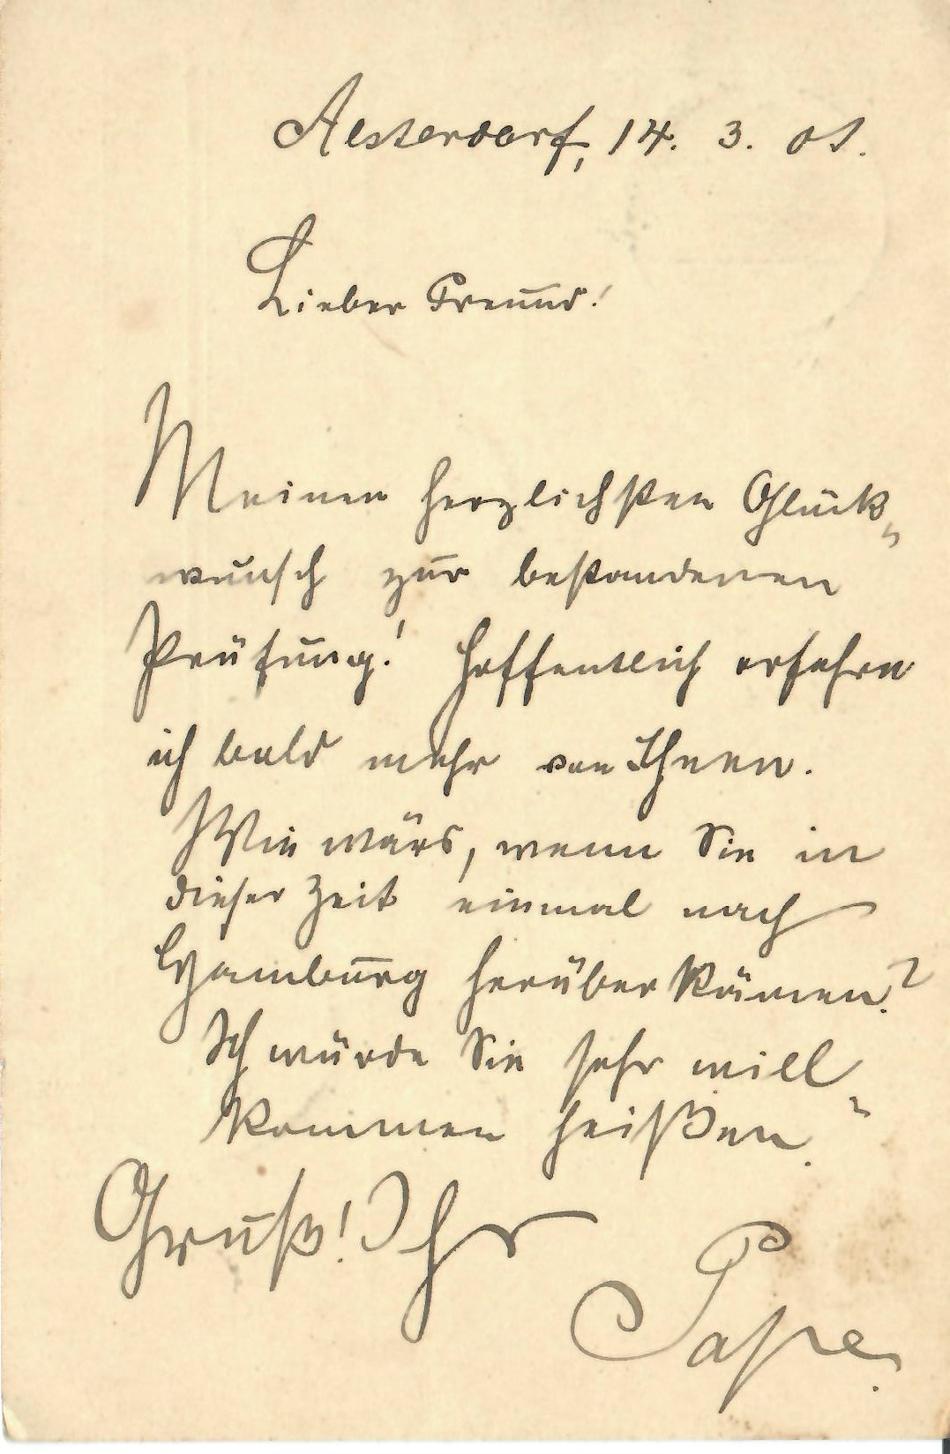 Alsterdorf, 14. 3. 01.
Lieber Freund!
Meinen herzlichsten Glück-
wunsch zur bestandenen
Prüfung! Hoffentlich erfahre
ich bald mehr von Ihnen.
Wie wärs, wenn Sie in
dieser Zeit einmal nach
Hamburg herüberkämen?
Ich würde Sie sehr will-
kommen heißen.
Gruß! Ihr
Pape.